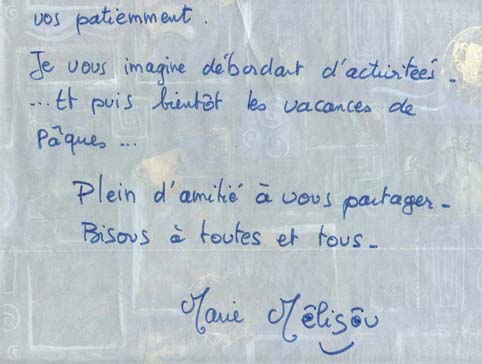 vos patiemment.
Je vous imagine débordant d'activitées -
...Et puis bientôt les vacances de
Pâques ...
Plein d'amitié à vous partager -
Bisous à toutes et tous -
Marie Mélisôu